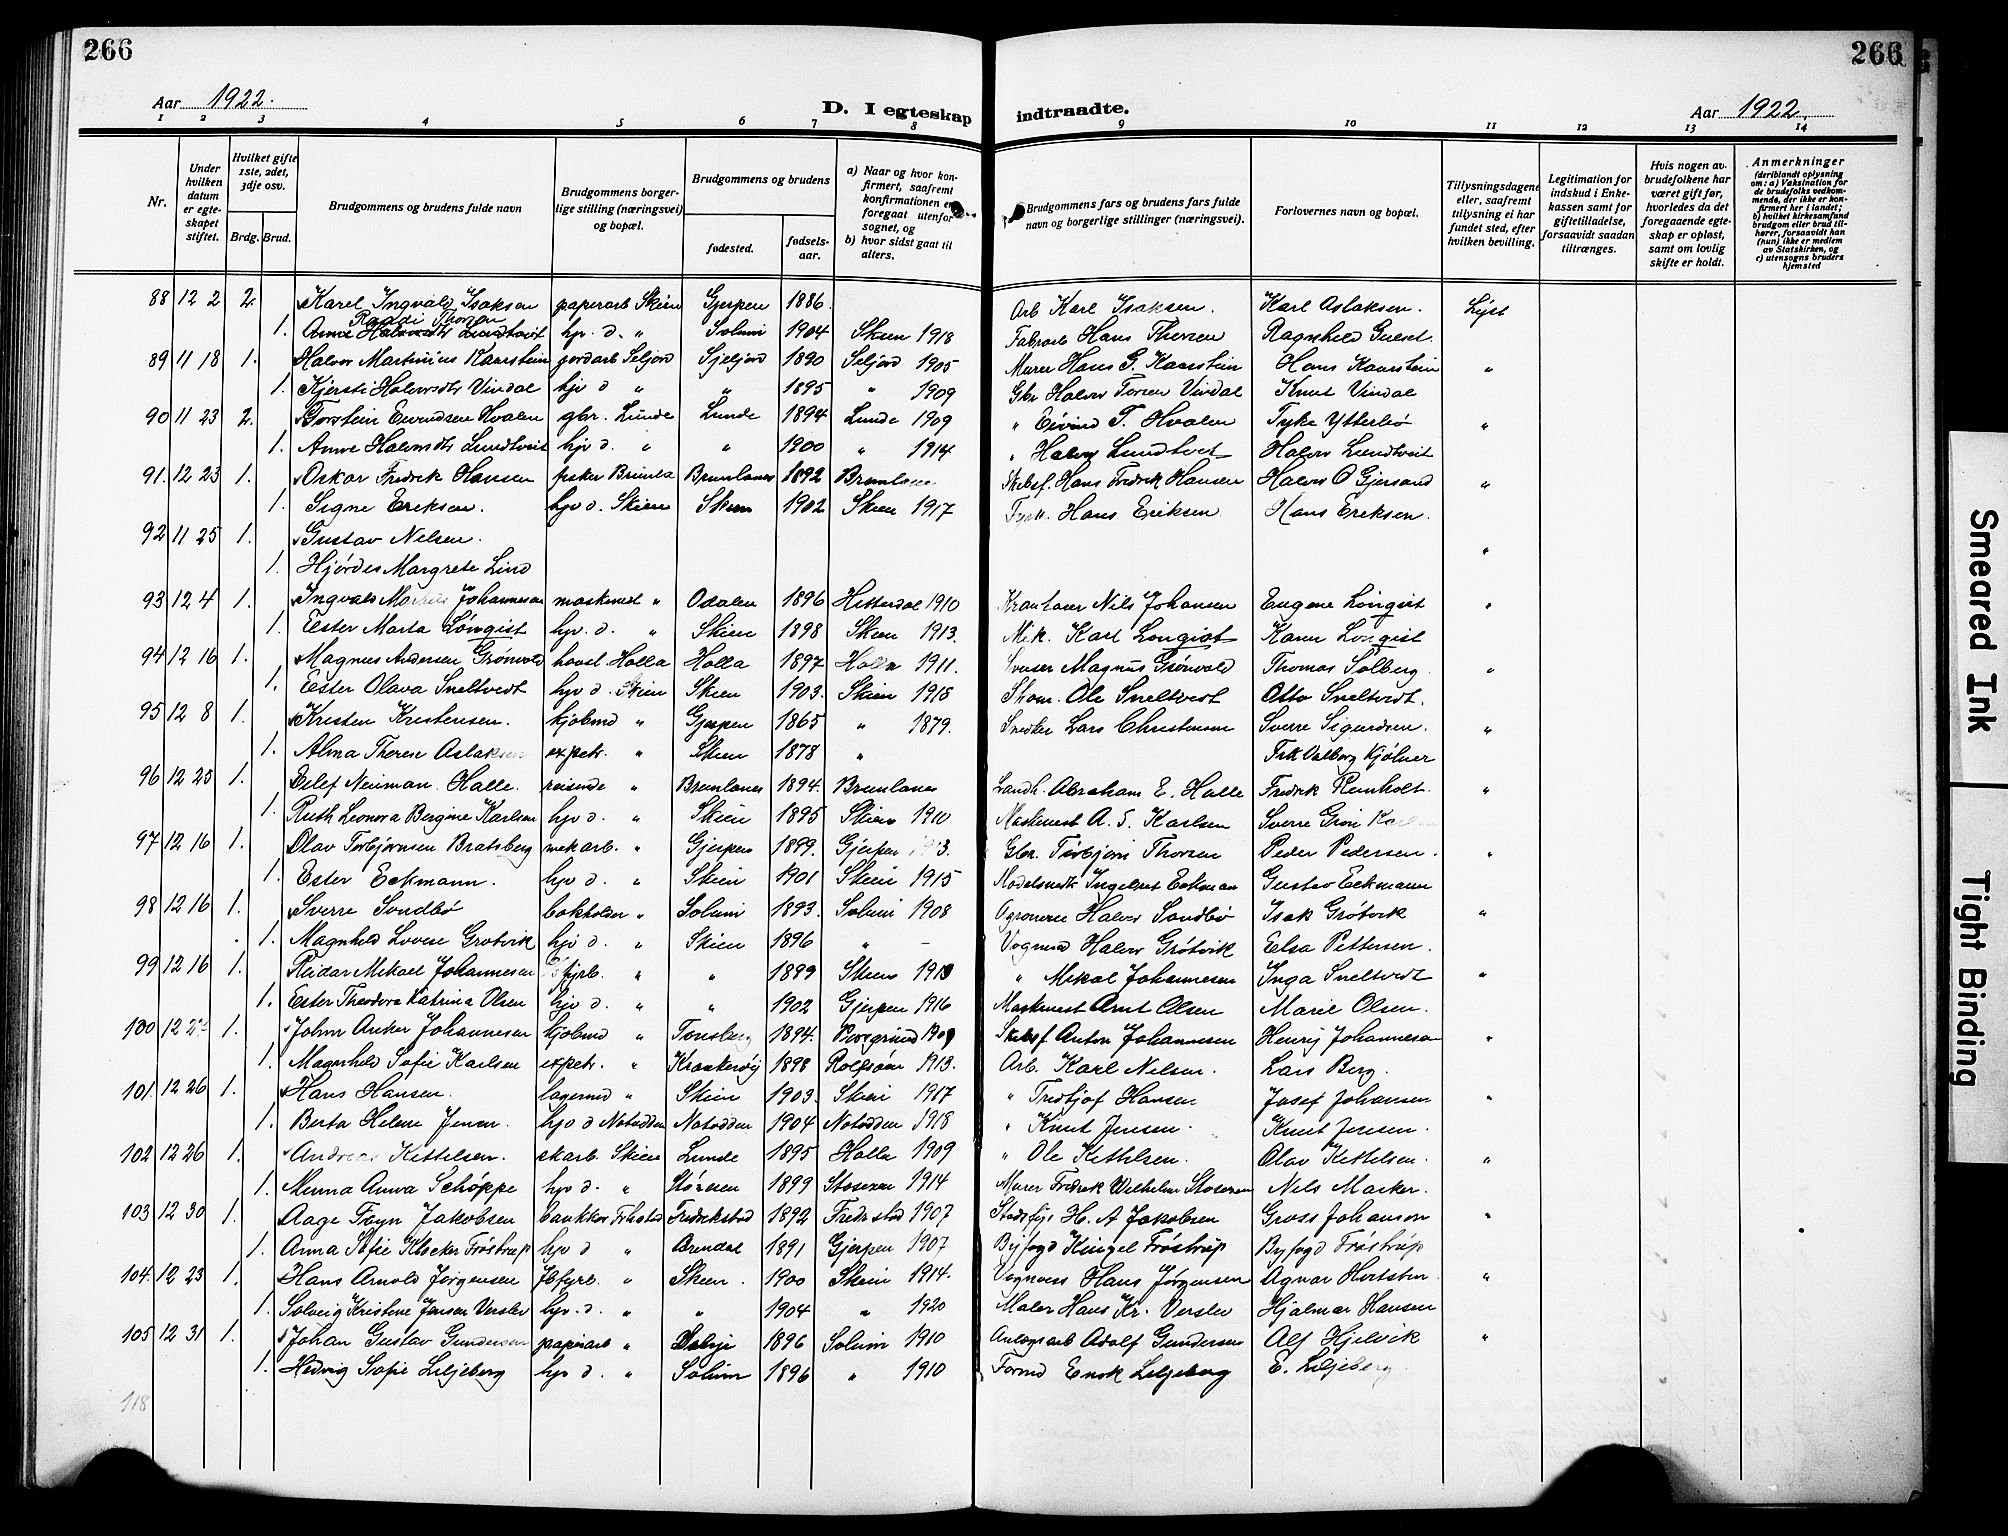 266
266
Aar 1922.
D. I egteskap indtraadte.
Aar 1922.
1 2 3 4 5 6 7 8 9 10 11 12 13 14
Nr.
Under hvilken datum er egteskapet stiftet.
Hvilket gifte 1ste, 2det, 3dje osv.
Brdg. Brud.
Brudgommens og brudens fulde navn
Brudgommens borgerlige stilling (næringsvei) og bopæl.
Brudgommens og brudens
fødested.
fødselsaar.
a) Naar og hvor konfirmert, saafremt konfirmationen er foregaat utenfor sognet, og
b) hvor sidst gaat til alters.
Brudgommens fars og brudens fars fulde navn og borgerlige stillinger (næringsvei).
Forlovernes navn og bopæl.
Tillysningsdagene eller, saafremt tillysning ei har fundet sted, efter hvilken bevilling.
Legitimation for indskud i Enkekassen samt for giftetilladelse, forsaavidt saadan tiltrænges.
Hvis nogen av brudefolkene har været gift før, hvorledes da det foregaaende egteskap er opløst, samt om lovlig skifte er holdt.
Anmerkninger (deriblandt oplysning om: a) Vaksination for de brudefolks vedkommende, der ikke er konfirmert her i landet; b) hvilket kirkesamfund brudgom eller brud tilhører, forsaavidt han (hun) ikke er medlem av Statskirken, og c) utensogns bruders hjemsted
88 12 2 2. Karel Ingvald Isaksen paperarb Skien Gjerpen 1886. Arb Karl Isaksen. Karl Aslaksen. Lyst
Raadi Thorsen
1. Anne Halvordts Lundtveit hjv. d. " Solum 1904 Skien 1918 Fabrarb Hans Thorsen Ragnhild Gulset.
89 11 18 1. Halvor Martinius Kaarstein gordarb Seljord Seljord 1890 Seljord 1905 Murer Hans G. Kaarstein Hans Kaarstein "
1. Kjersti Halvordts Vindal hjv d " " 1895 " 1909 Gbr Halvor Torsen Vindal Knut Vindal
90 11 23 2. Torstein Eivindsen Hvalen gbr. Lunde Lunde 1894 Lunde 1909 " Eivind T. Hvalen Tyke Ytterbø "
1. Anne Halvordts Lundtveit hjv d. " " 1900 " 1914 " Halvor Lundtvet Halvor Lundtveit
91. 12 23 1. Oskar Fredrik Hansen fisker Brunla Brunlanes 1892 Brunlanes. Skibsf. Hans Fredrik Hansen Halvor O Gjersand "
1. Signe Eriksen. hjv d. Skien Skien 1902 Skien 1917 Hans Eriksen Hans Eriksen.
92 11 25 1. Gustav Nelsen. "
1. Hjørdis Margrete Lind
93 12 4 1. Ingvald Johannesen maskinist " Odalen 1896 Hitterdal 1910 Kranfører Nils Johansen Eugene Lönqvist "
1. Ester Marta Lönqist hjv. d. " Skien 1898 Skien 1913. Mek. Karl Lonqist Karin Lonqist
94 12 16 1. Magnus Andersen Grønvold hovsl. Holla Holla 1897 Holla 1911. Sveiser Magnus Grønvold Thomas Solberg. "
1. Ester Olava Sneltvedt hjv d. Skien Skien 1903. Skien 1918 Skom. Ole Sneltvedt Otto Sneltvedt.
95 12 8 1. Kristen Kristensen. kjøbmd " Gjerpen 1865 " 1879. Snedker Lars Christensen Sverre Sigurdsen. "
1. Alma Therese Aslaksen expetr. " Skien 1878 " Frk Valborg Kjølner
96 12 25 1. Detlef Neuman Halle. reisende " Brunlanes 1894. Brunlanes Landh. Abraham E. Halle Fredrik Reinholt. "
1. Ruth Leonora Bergine Karlsen hjv d. " Skien 1895 Skien 1910 Maskinist A. S. Karlsen Sverre Gron
97 12 16 1. Olav Torbjørnsen Bratsberg mekarb. " Gjerpen 1899. Gjerpen Gbr. Torbjørn Thorsen Peder Pedersen. "
1. Ester Eckmann. hjv d. " Skien 1901 Skien 1915 Modelsnedk Ingebret Eckman Gustav Eckmann
98 12 16 1. Sverre Sondbø bokholder " Solum 1893. Solum 1908 Agronom Halvor Sondbø Isak Grötvik "
1. Magnhild Lovise Grotvik hjv d. " Skien 1896 " — Vognmd Halvor Grötvik Elsa Pettersen.
99 12 16 1. Reidar Mikael Johannesen fyrb. " " 1899 Skien 1913 " Mikal Johannesen Inga Sneltvedt "
1. Ester Theodora Katrina Olsen hjv d. " " 1902 Gjerpen 1916 Maskinist Arnt Olsen Marie Olsen.
100 12 1. John Anker Johannesen kjøbmd " Tonsberg 1894. Porsgrund 1909 Skibsf Anton Johannesen Henrij Johannesen "
1. Magnhild Sofie Karlsen expetr. " Kraakerøy 1898 Rolfsøen 1913. Arb. Karl Nelsen. Lars Berg.
101. 12 26 1. Hans Hansen. lagermd " Skien 1903. Skien 1917 " Fredtjof Hansen Josef Johansen "
1. Berta Helene Jensen hjv d Notodden Notodden 1904 Notodden 1918 " Knut Jensen. Knut Jensen.
102 12 26 1. Andreas Kittelsen. skarb. Skien Lunde 1895 Holla 1909 " Ole Kittelsen. Olav Kittelsen. "
1. Minna Anna Schöppe hjv d. " 1899 1914 Murer Fredrik Wilhelm Nils Masker.
103 12 30 1. Aage Fayn Jakobsen bankkas Frkstad Fredrikstad 1892 Fredrstad 1907 H. A Jakobsen Gross Johanson "
1. Anna Sofie Klocker Fröstrup hjv d " Arendal 1891 Gjerpen 1907 Byfogd Kingel Fröstrup Byfogd Fröstrup
104. 12 23 1. Hans Arnold Jørgensen " Skien. 1900 Skien 1914. Hans Jørgensen Agnar "
1. Solveig Kristine Jensen Verslev hjv. d. " " 1904 " 1920 Maler Hans Kr. Verslev Hjalmar Hansen
105 12 31 1. Johan Gustav Gundersen papirarb " 1896 Solum 1910 Anlegsarb Adolf Gundersen Alf Hjelvik "
1. Hedvig Sofie Liljeberg hjv d. " Solum 1896 " 1910 Formd Liljeberg E. Liljeberg
118
Smeared Ink
Tight Binding